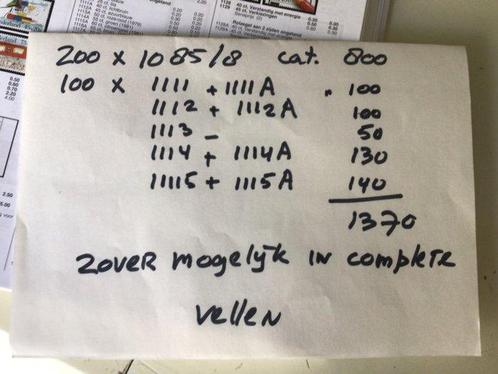 200 x 1085/8 cat. 800
100 x 1111 + 1111A " 100
1112 + 1112A 100
1113 - 50
1114 + 1114A 130
11115 + 1115A 140
1370
zover mogelijk in complete
vellen